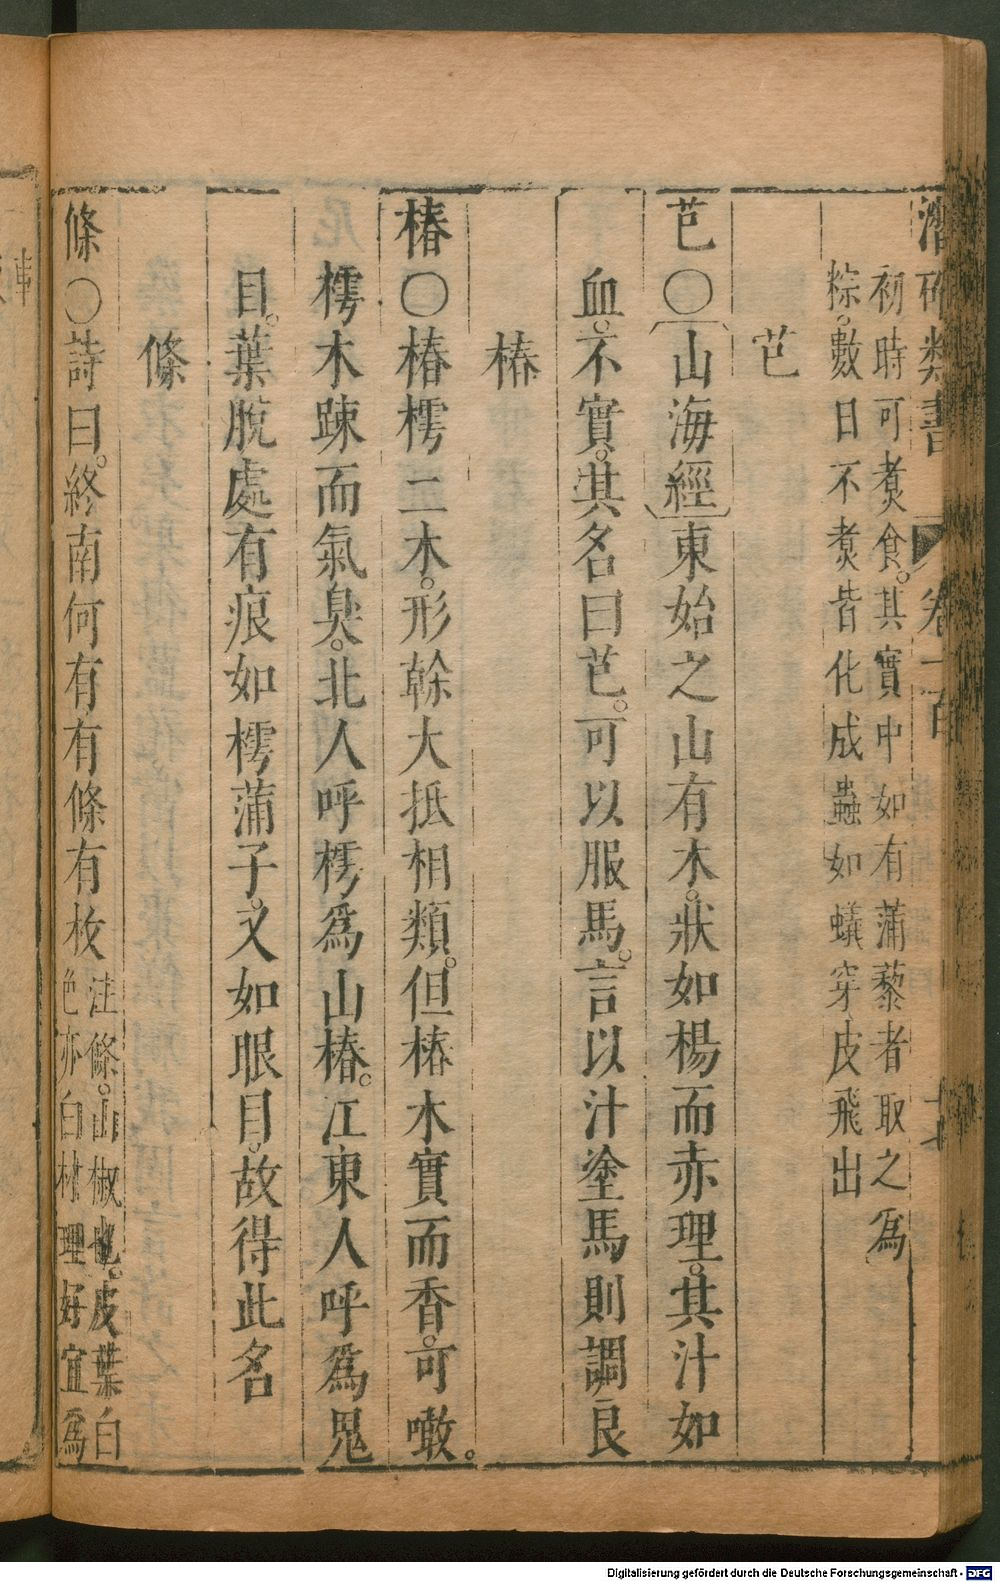 潛確類書 卷一百
初時可煑食。其實中如有蒲藜者取之為
粽。數日不煑皆化成蟲如蟻穿皮飛出
芑
芑〇〔山海經〕東始之山有木。狀如楊而赤理。其汁如
血。不實。其名曰芑。可以服馬。言以汁塗馬則調良
椿
椿〇椿樗二木。形榦大抵相類。但椿木實而香。可噉。
樗木踈而氣臭。北人呼樗為山椿。江東人呼為鬼
目。葉脫處有痕如樗蒲子。又如眼目。故得此名
條
條〇詩曰。終南何有有條有枚
注條。山椒也。皮葉白
色亦白材理好宜為
Digitalisierung gefördert durch die Deutsche Forschungsgemeinschaft - DFG